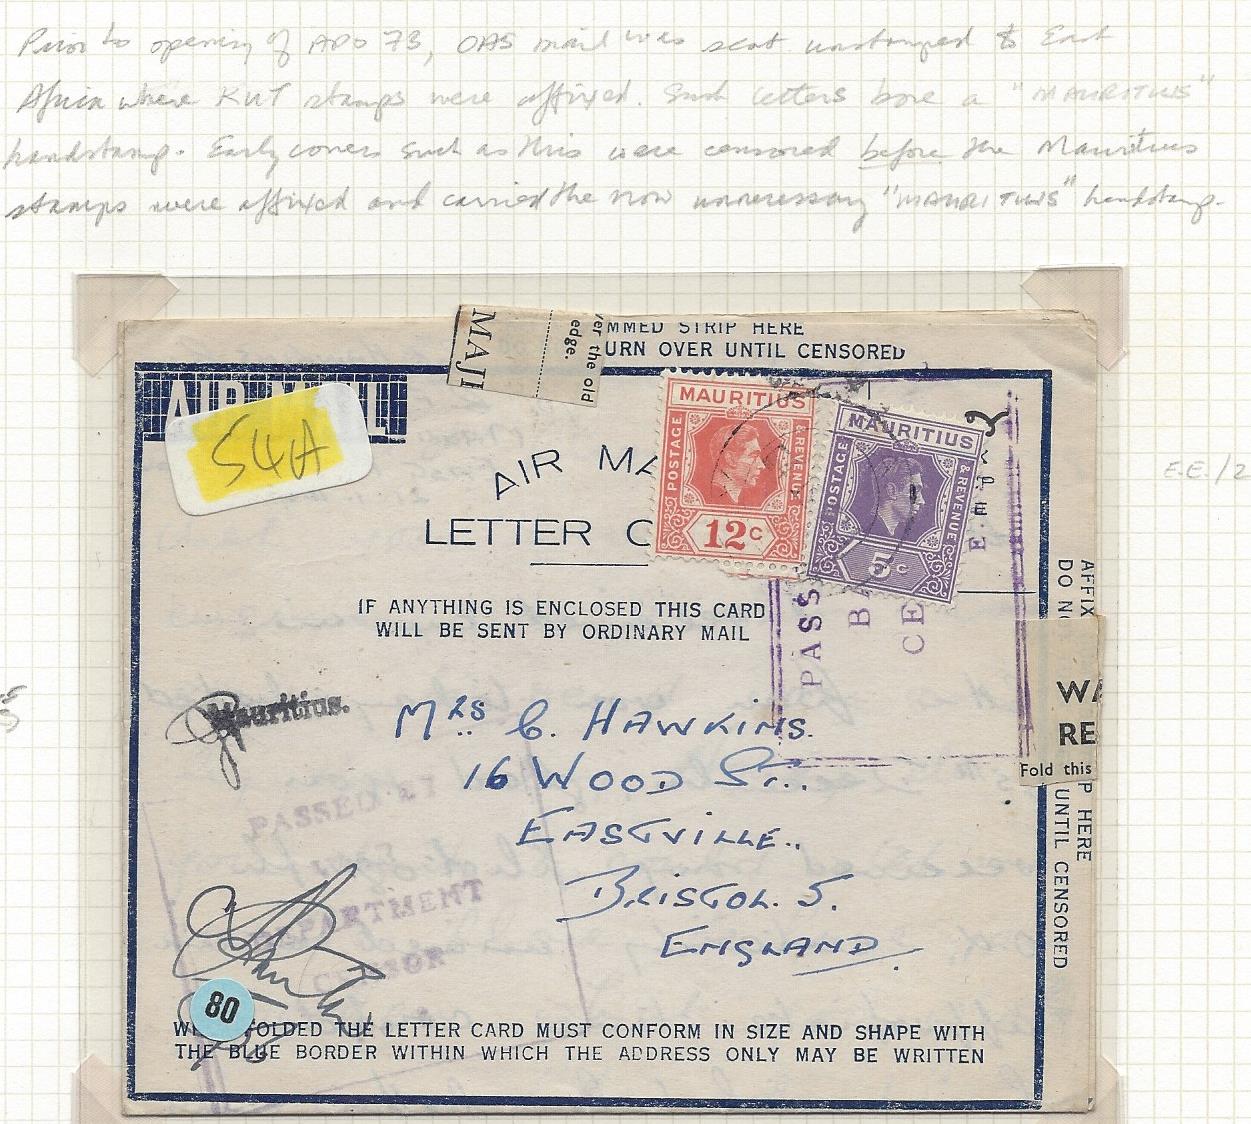 Prior to opening of APO 73, OAS mail was sent unstamped to East
Africa where KUT stamps were affixed. Such letters bore a "MAURITIUS"
handstamp. Early covers such as this were censored before the Mauritius
stamps were affixed and carried the now unnecessary "MAURITIUS" handstamp.
MMED STRIP HERE
URN OVER UNTIL CENSORED
ver the old
edge.
MAJE
AIR MAIL
54A
AIR MA
LETTER C
MAURITIUS
POSTAGE
& REVENUE
12c
MAURITIUS
POSTAGE
& REVENUE
5c
E.E./2
IF ANYTHING IS ENCLOSED THIS CARD
WILL BE SENT BY ORDINARY MAIL
PASS
B
CE
AFFIX
DO NO
WA
RE
Fold this
P HERE
UNTIL CENSORED
Mauritius.
MRS C. HAWKINS.
16 WOOD ST..
EASTVILLE..
BRISTOL. 5.
ENGLAND.
PASSED BY
DEPARTMENT
CENSOR
80
W FOLDED THE LETTER CARD MUST CONFORM IN SIZE AND SHAPE WITH
THE BLUE BORDER WITHIN WHICH THE ADDRESS ONLY MAY BE WRITTEN